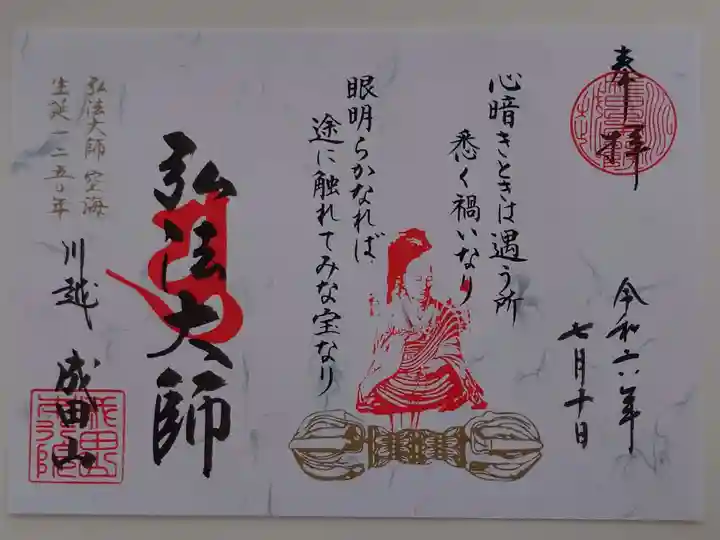 奉拝
令和六年
七月十日
心暗きときは遇う所
悉く禍いなり
眼明らかなれば
途に触れてみな宝なり
弘法大師
弘法大師 空海
生誕一二五〇年
川越 成田山